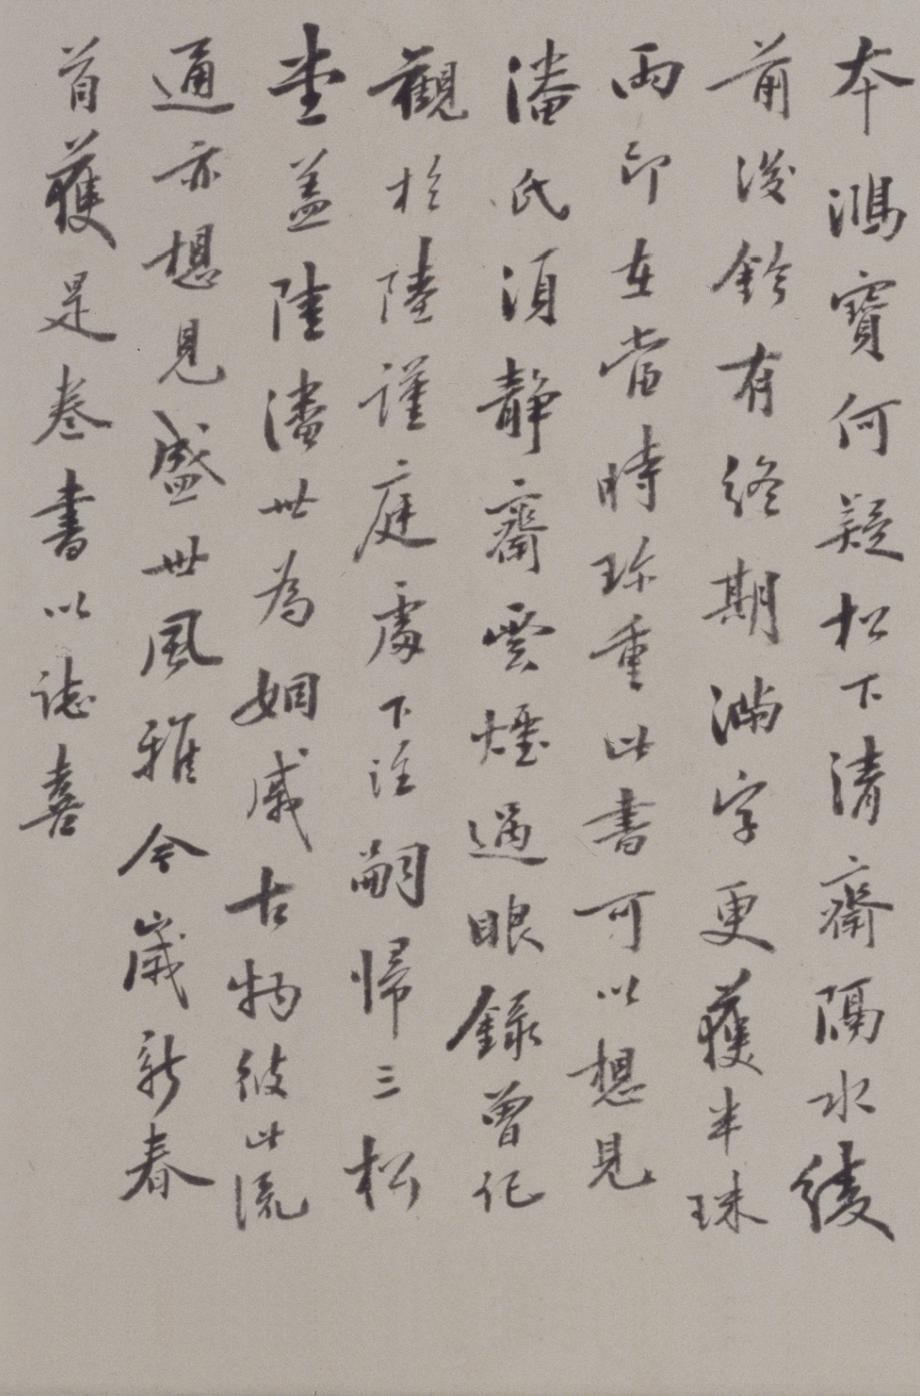 本鴻寶何疑松下清齋隔水綾
前後鈐有終期滿字更獲半珠
兩印在當時珎重此書可以想見
潘氏須靜齋雲煙過眼錄曾記
觀於陸謹庭處下注嗣帰三松
堂蓋陸潘世為姻戚古物彼此流
通亦想見盛世風雅今歲新春
首獲是卷書以誌喜